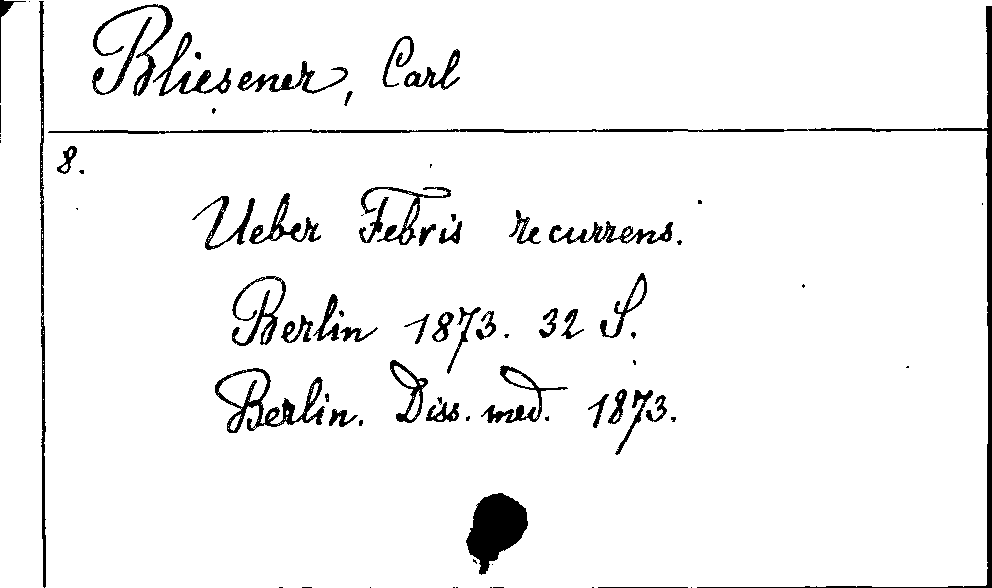 Bliesener, Carl
8.
Ueber Febris recurrens.
Berlin 1873. 32 S.
Berlin. Diss. med. 1873.